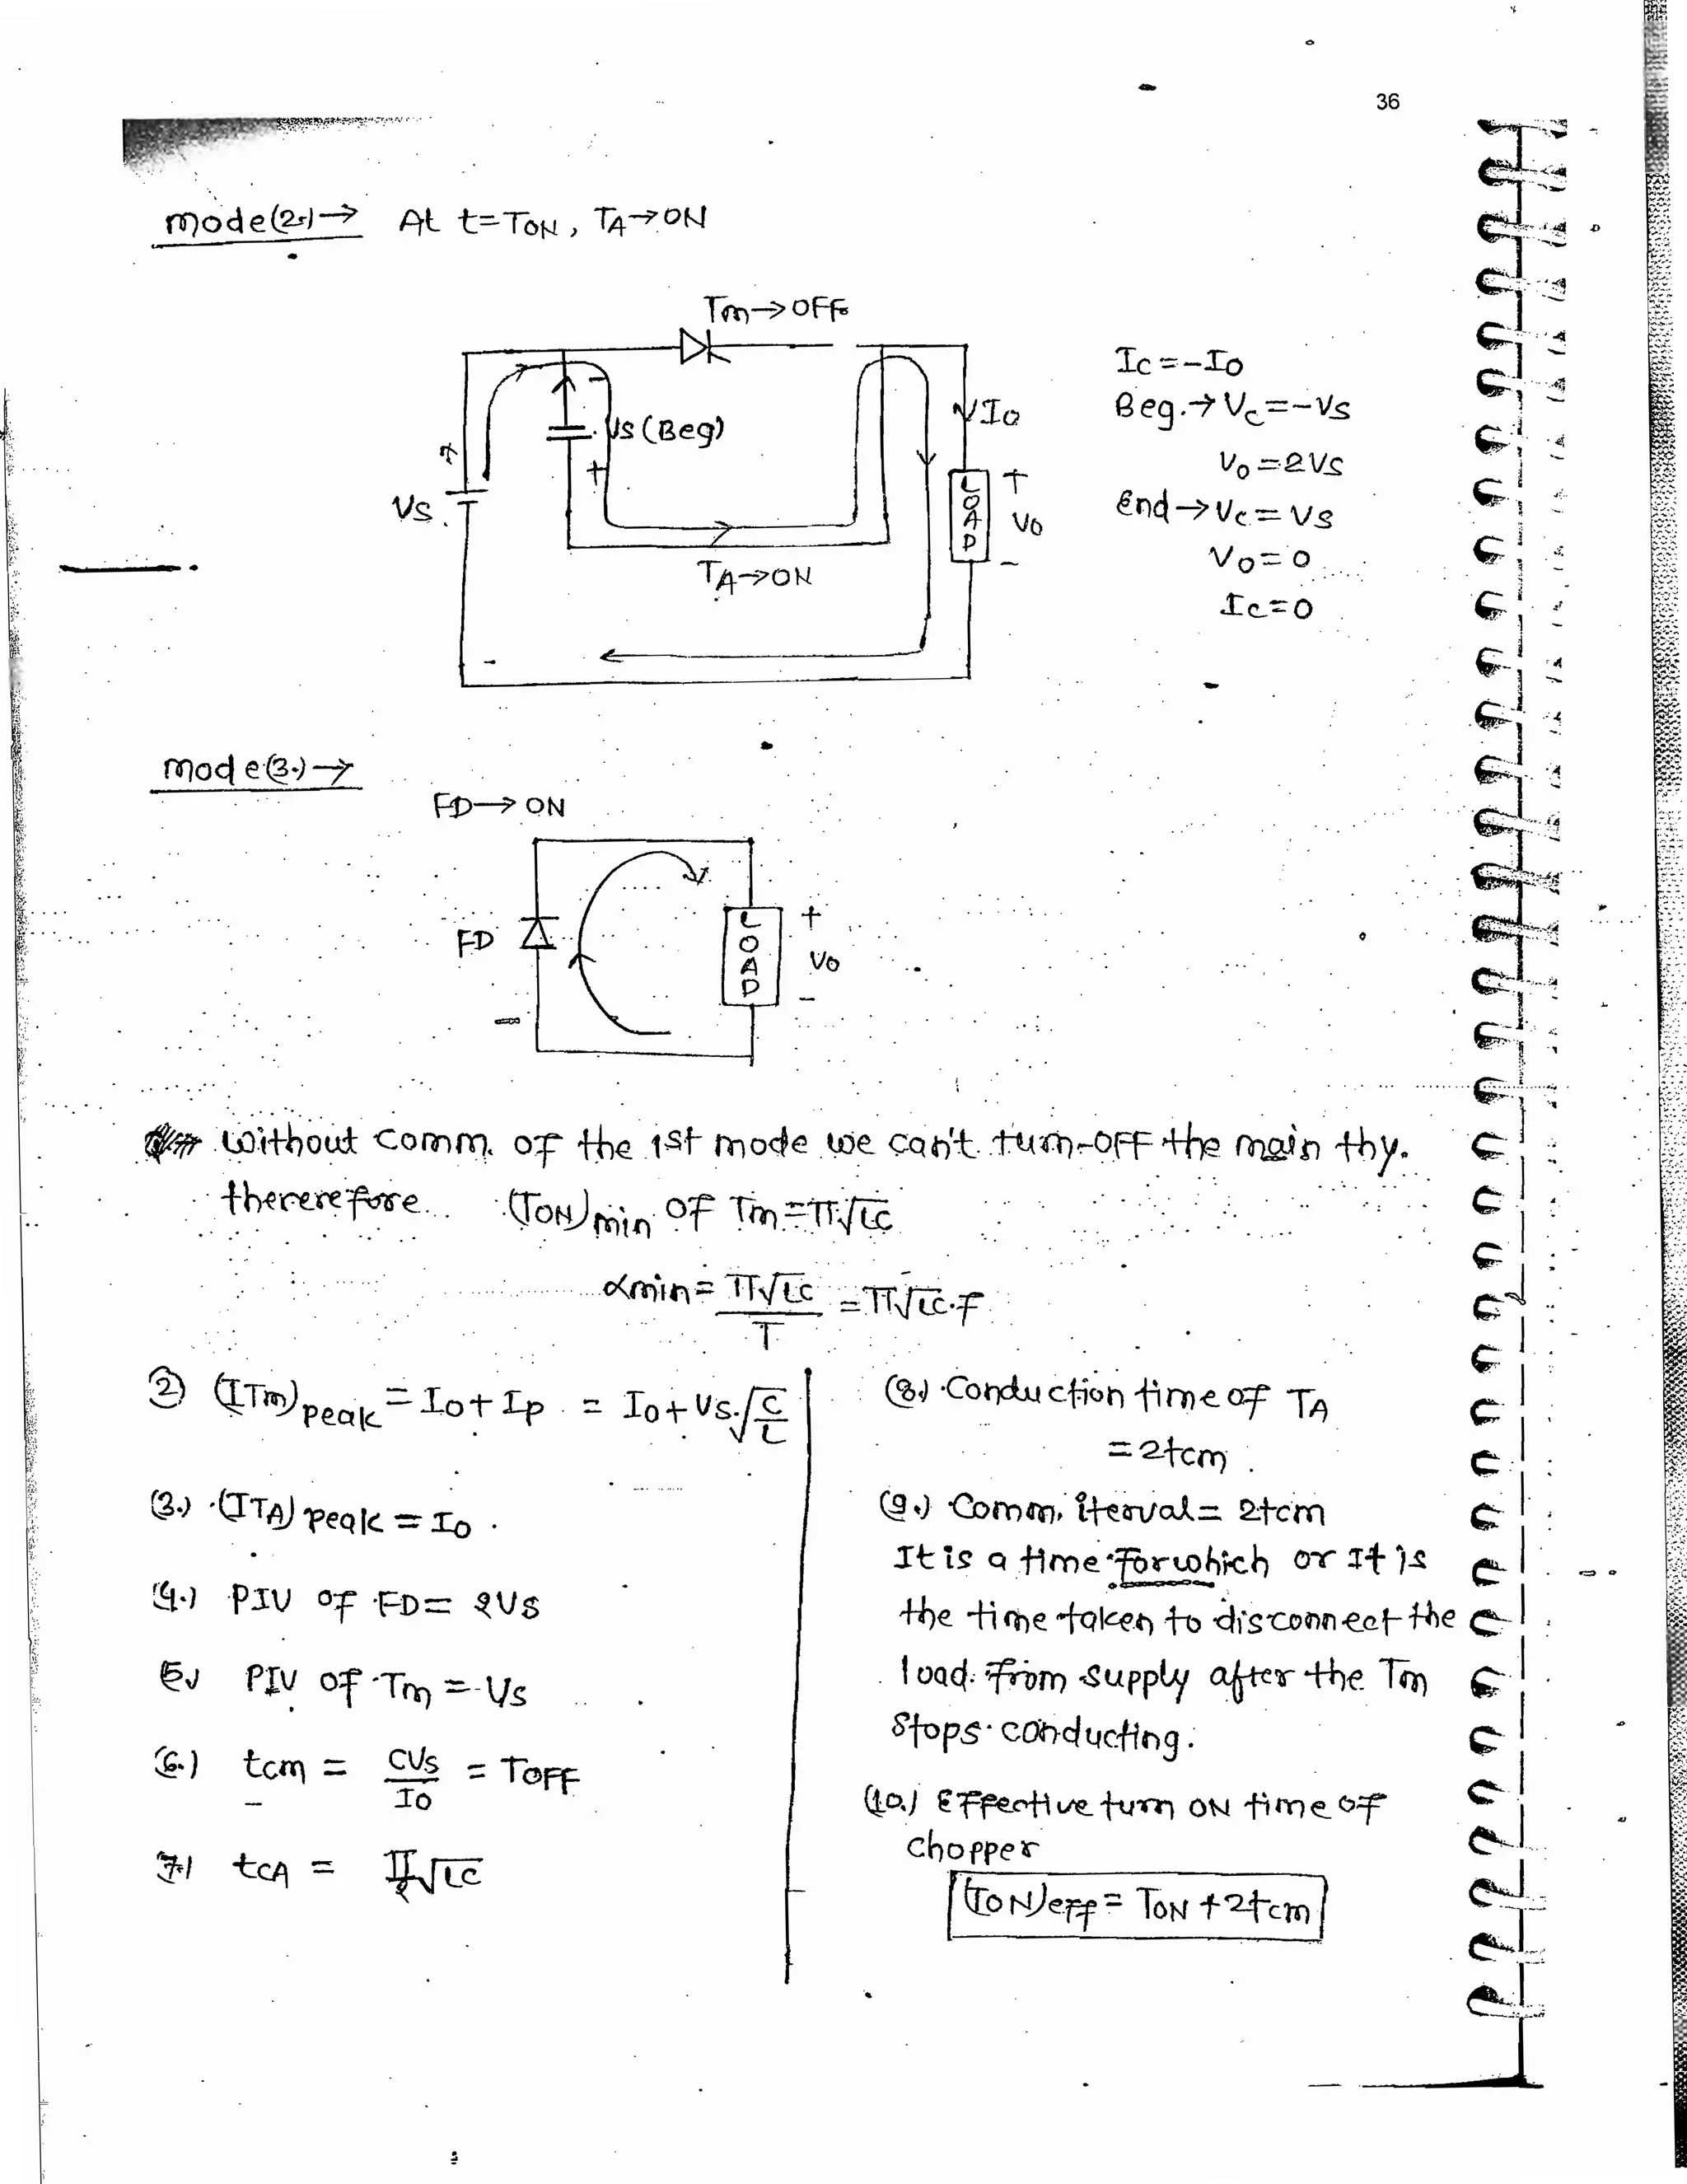 36
mode(2.)→ At t=TON, TA→ON
Tm→OFF
Ic=-Io
Beg.→ Vc=-Vs
Vo=2Vs
End→ Vc=Vs
Vo=0
Ic=0
+
Vs
-
-
Vs (Beg)
+
TA→ON
Io
LOAD
+
Vo
-
mode(3.)→
FD→ ON
FD
LOAD
+
Vo
-
without comm. of the 1st mode we can't turn-OFF the main thy.
thererefore (TON)min of Tm=π√LC
αmin= π√LC/T =π√LC.f
② (ITm)peak = Io+Ip = Io+Vs.√C/L
(3.) (ITA)peak = Io.
(4.) PIV of FD= 2Vs
5.) PIV of Tm = Vs
(6.) tcm = CVs/Io = TOFF
7.) tcA = π/2√LC
(8.) Conduction time of TA
=2tcm.
(9.) Comm. iterval= 2tcm
It is a time for which or It is
the time taken to disconnect the
load from supply after the Tm
stops conducting.
(10.) Effective turn ON time of
chopper
(TON)eff = TON+2tcm